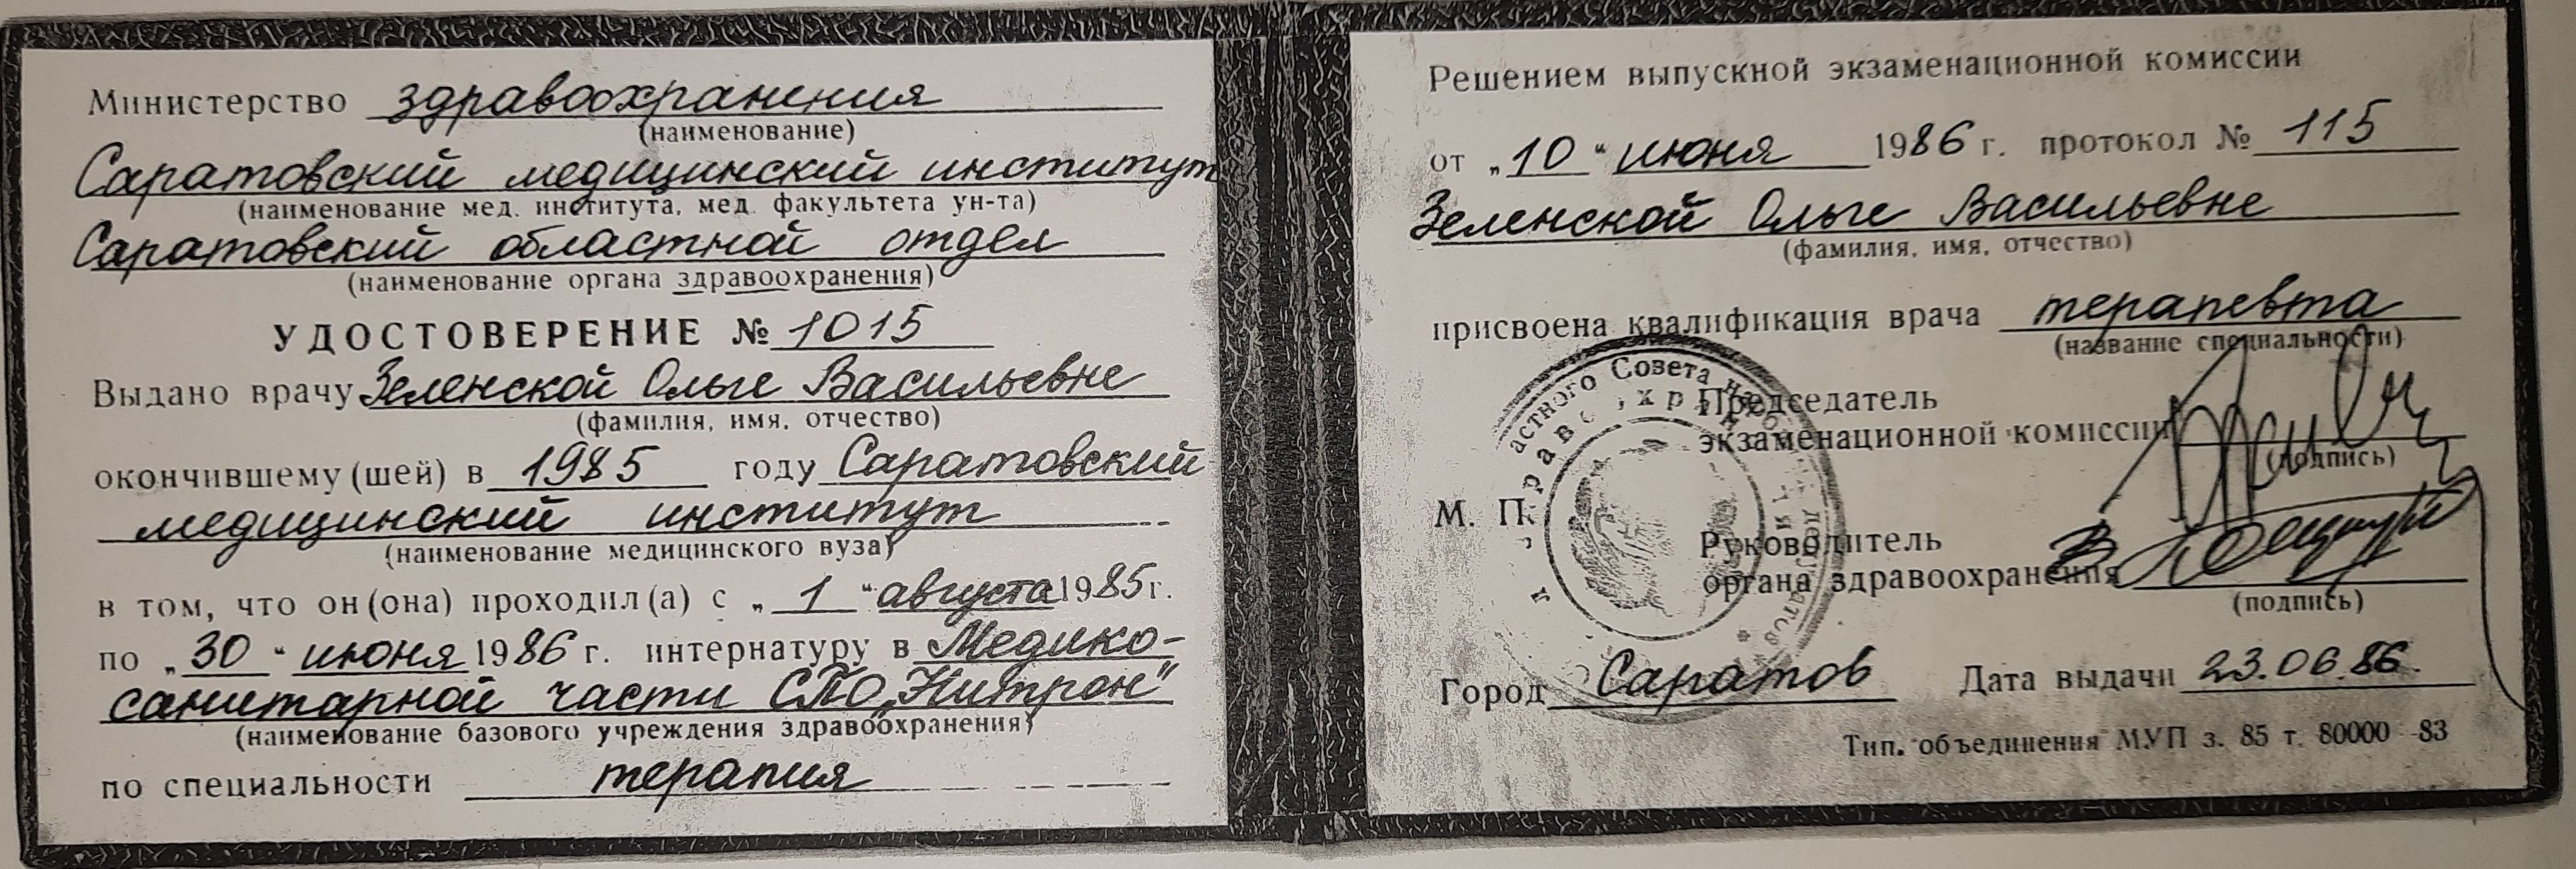 Министерство здравоохранения
(наименование)
Саратовский медицинский институт
(наименование мед. института, мед. факультета ун-та)
Саратовский областной отдел
(наименование органа здравоохранения)
УДОСТОВЕРЕНИЕ № 1015
Выдано врачу Зеленской Ольге Васильевне
(фамилия, имя, отчество)
окончившему (шей) в 1985 году Саратовский
медицинский институт
(наименование медицинского вуза)
в том, что он (она) проходил (а) с „1“ августа 1985 г.
по „30“ июня 1986 г. интернатуру в Медико-
санитарной части СПО „Нитрон“
(наименование базового учреждения здравоохранения)
по специальности терапия
Решением выпускной экзаменационной комиссии
от „10“ июня 1986 г. протокол № 115
Зеленской Ольге Васильевне
(фамилия, имя, отчество)
присвоена квалификация врача терапевта
(название специальности)
Председатель
экзаменационной комиссии
(подпись)
М. П.
Руководитель
органа здравоохранения
(подпись)
Город Саратов Дата выдачи 23.06.86.
Тип. объединения МУП з. 85 т. 80000 -83
астного Совета